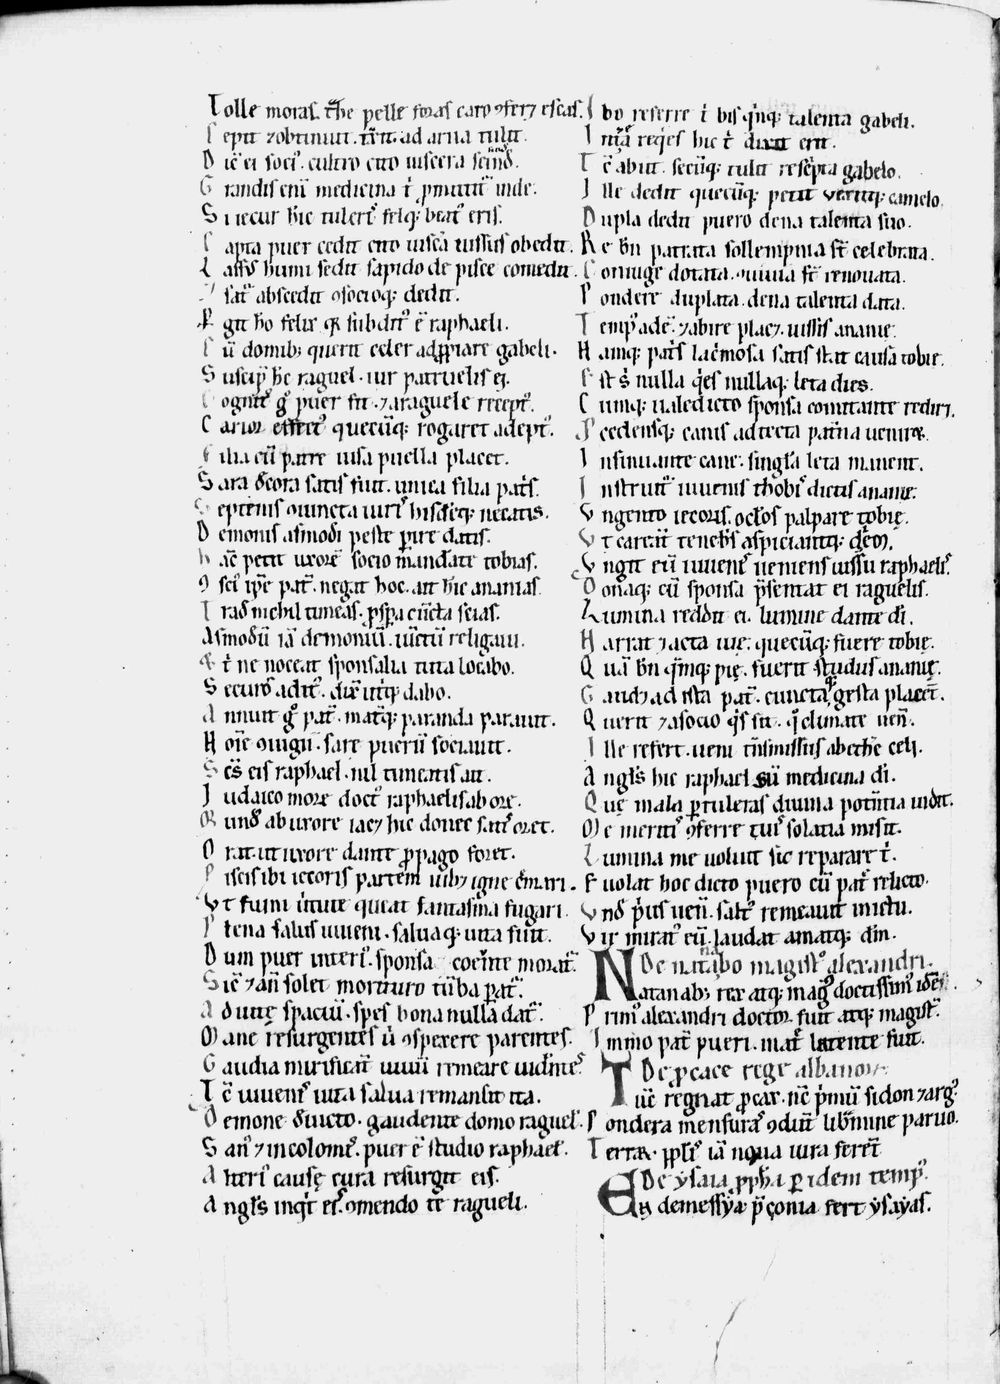 Tolle moras. tħe pelle foras caro ɔferꝫ escas.
Cepit ⁊obtinuit. t̃rit. ad arua tulit.
Dic̄ ei soci᷒. cultro cito uiscera scind̄.
Grandis eni᷒ medicina t̓ ꝓmittit᷒ inde.
Si iecur hic tuleri᷒ felq; beat᷒ eris.
Capta puer cedit cito uisc̃a iussus obedit.
Lass᷒ humi sedit sapido de pisce comedit.
sat᷒ abscedit ɔsocioq; dedit.
git ħo felix. qr̄ subdit᷒ ē raphaeli.
Cū domib; querit celer adꝓpiare gabeli.
Suscip̃ hc̄ raguel. iur patruelis ei.
Cognit᷒ g᷒ puer fit. ⁊araguele recept᷒.
Carior effect᷒ quecūq; rogaret adept᷒.
Filia cū patre uisa puella placet.
Sara dc̄ora satis fuit. unica filia pat̄s.
Septenis ɔiuncta uiri᷒ hisdēq; necatis.
Demonis asmodi peste ꝑire datis.
hāc petit uxorē socio mandate tobias.
ɔsci᷒ ip̄e pat᷒. negat hoc. ait hic ananias.
Irad᷒ nichil timeas. ꝓspa cūcta scias.
Asmodū iā demoniū. uictū religaui.
& t̓ ne noceat sponsalia tuta locabo.
Secur᷒ adit᷒. dux̄ itq; dabo.
Annuit g᷒ pat᷒. mat̓q; paranda parauit.
Noīe ɔiugii. sare puerū sociauit.
Sc̄s eis raphael. nil timeatis ait.
Iudaico more doct᷒ raphaelis ab ore.
Mund᷒ ab uxore iacꝫ hic donec sat᷒ oret.
Orat. ut uxore dante ꝓpago foret.
Piscis ibi iecoris partem iubꝫ igne c̓mari.
Vt fumi ūtute queat fantasma fugari.
Ptena salus iuueni. saluaq; uita fuit.
Dum puer interi᷒. sponsa coeūte morat᷒.
Sic̄ ⁊añ solet morituro tūba ꝑat᷒.
Aduitę spaciū. spes bona nulla dat᷒.
Mane resurgentes ū ɔspexere parentes.
Gaudia mirificat᷒ uiuū remeare uidentes
Tē iuueni᷒ uita salua remansit ita.
Demone deuicto. gaudente domo raguel᷒.
San᷒ ⁊incolome᷒. puer ē studio raphael᷒.
Alteri᷒ causę cura resurgit eis.
Angl᷒s inqͥt es᷒. ɔmendo te ragueli.
Ibo referre t̓ bis qͥnq; talenta gabeli.
Int̄a reqͥes hic t̓ dixit erit.
Tē abiit. secūq; tulit resc̄pta gabelo.
Ille dedit quecūq; petit ueritq; camelo.
Dupla dedit puero dena talenta suo.
Re bn̄ patrata sollempnia st̄ celebrata.
Coniuge dotata. ɔuiuia st̄ renouata.
Pondere duplata. dena talenta data.
Temp᷒ adē. ⁊abire placꝫ. iussis ananię.
Namq; pat̄s lac̓mosa satis stat causa tobię.
Est s̓ nulla qͥes nullaq; leta dies.
Cumq; ualedicto sponsa comitante redirꝫ.
Pcedensq; canis adtecta pat̄na uenire.
Insinuante cane. singl̄a leta manent.
Instruit᷒ iuuenis thobi᷒ dictis ananię.
Vngento iecoris. oct̄os palpare tobię.
Vt careāt teneb̄s aspiciantq; dc̄m.
Vngit eū iuueni᷒ ueniens iussu raphaelis.
Donaq; eū sponsa p̄sentat ei raguelis.
Lumina reddit ei. lumine dante di᷒.
Narrat ⁊acta uię. quecūq; fuere tobię.
Quā bn̄ qm̄q; pię. fuerit studus ananię.
Gaudꝫ ad ista pat᷒. cunctaq; gesta placēt.
Querit ⁊asocio qͥs sit. qͥ clunate uen̄.
Ille refert. ueni tn̄smissus abethe celi.
Angl᷒s hic raphael sū medicina di᷒.
Quę mala ꝑtuleras diuina potētia uidit.
Me meriti᷒ ɔferre tuis᷒ solatia misit.
Lumina me uoluit sic reparare t̓.
Euolat hoc dicto puero cū pat᷒ relicto.
Vnd̄ p̓us uen̄. salt᷒ remeauit inictu.
Vir mirat᷒ eū. laudat amatq; dn̄m.
De natanabo magist᷒ alexandri.
Natanab; rex atq; mag᷒ doctissim᷒ idē
Prim᷒ alexandri doctor. fuit atq; magist᷒.
Immo pat᷒ pueri. mat̓ latente fuit.
De ꝓcace rege albanorū
Tūc regnat ꝓcax. nc̄ p̓mū sidon ⁊arg᷒.
Pondera mensuras᷒ ɔdūt lib̄mine paruo.
Terra. ppls᷒ iā noua iura ferēt
De ysaia ꝓpħa ꝑ idem temp᷒.
En demessya p̄conia fert ysayas.